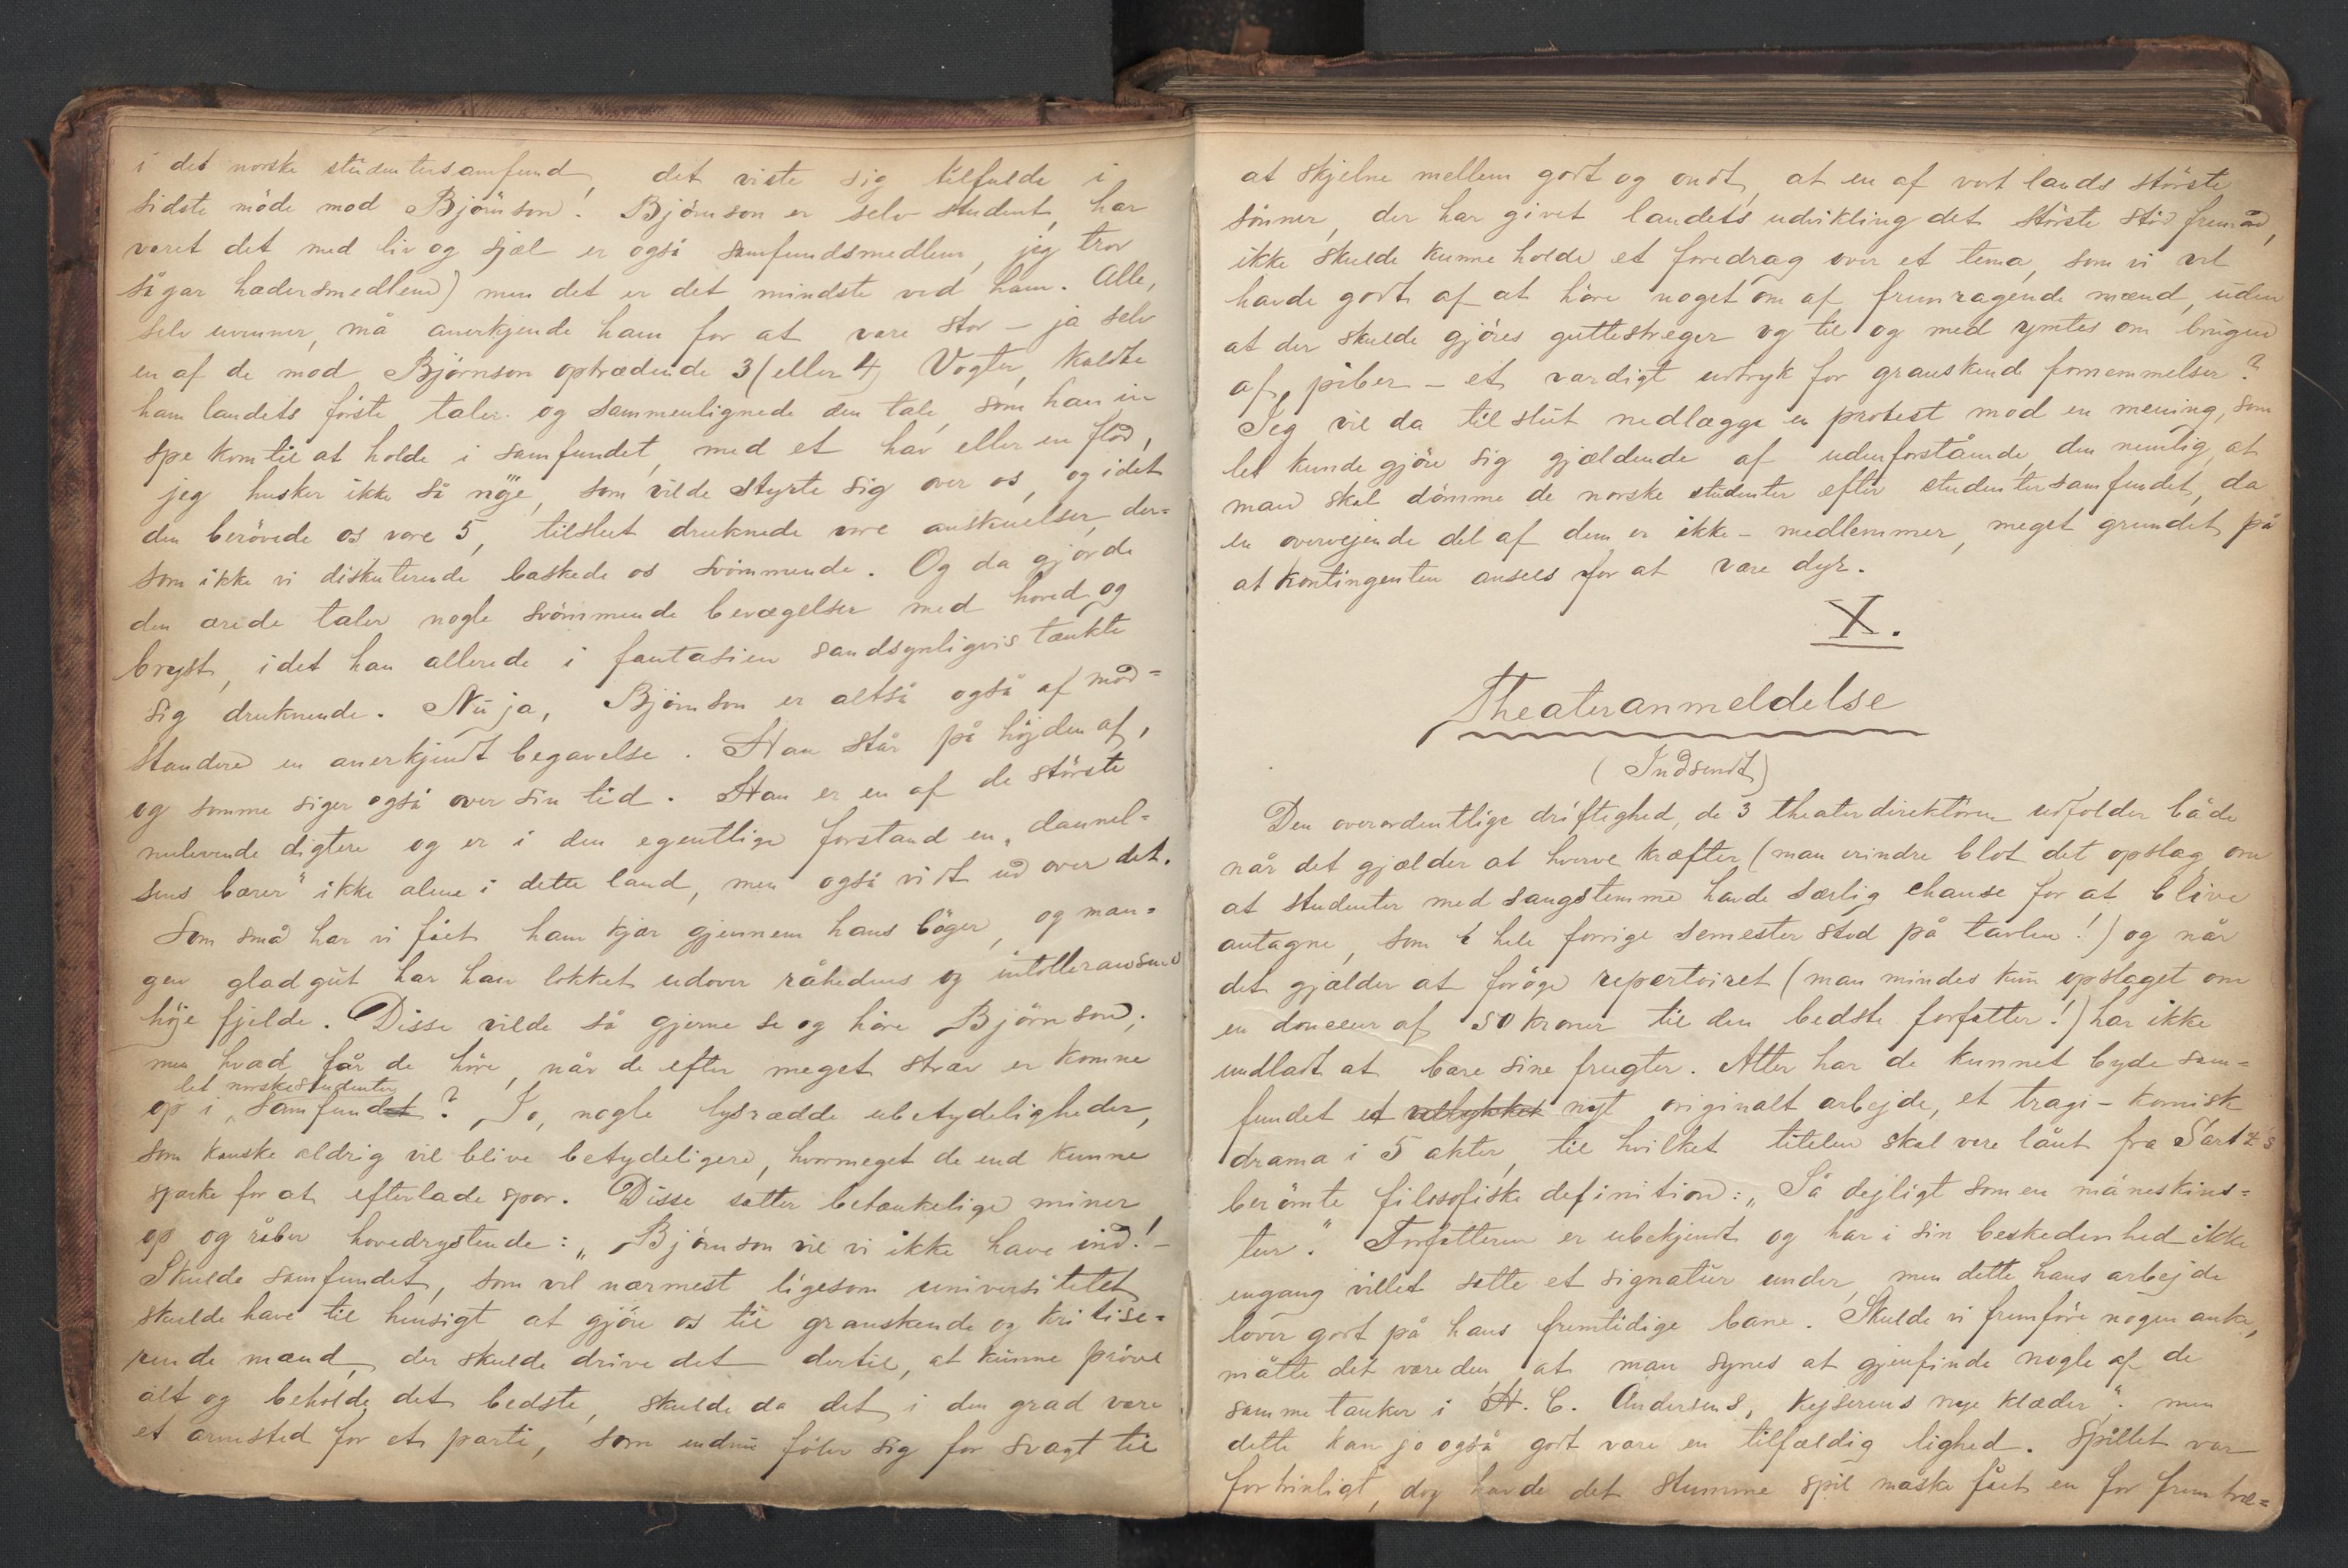 i det norske studentersamfund, det viste sig tilfulde i
sidste møde mod Bjørnson! Bjørnson er selv student, har
været det med liv og sjæl er også samfundsmedlem, jeg tror
sågar hædersmedlem) men det er det mindste ved ham. Alle,
selv uvenner, må anerkjende ham for at være stor – ja selv
en af de mod Bjørnson optrædende 3 (eller 4) Vogter, kaldte
ham landets første taler og sammenlignede den tale, som han in
spe kom til at holde i samfundet, med et hav eller en flod,
jeg husker ikke så nøje, som vilde styrte sig over os, og idet
den berøvede os vore 5, tilslut druknede vore anskuelser, der=
som ikke vi diskuterende baskede os svømmende. Og da gjorde
den ærede taler nogle svømmende bevægelser med hoved og
bryst, idet han allerede i fantasien sandsynligvis tænkte
sig druknende. Nu ja, Bjørnson er altså også af mod=
standere en anerkjendt begavelse. Han står på højden af,
og somme siger også over sin tid. Han er en af de største
nulevende digtere og er i den egentlige forstand en „dannel=
sens bærer“ ikke alene i dette land, men også vidt ud over det.
Som små har vi fået ham kjær gjennem hans bøger, og man=
gen glad gut har han lokket udover råhedens og intolleransens
høje fjelde. Disse vilde så gjerne se og høre Bjørnson;
men hvad får de høre, når de efter meget stræv er komne
det norske studenter
op i „samfundet? Jo, nogle lysrædde ubetydeligheder,
som kanske aldrig vil blive betydeligere, hvormeget de end kunne
sparke for at efterlade spor. Disse sætter betænkelige miner
op og råber hovedrystende: „Bjørnson vil vi ikke have ind!–
Skulde samfundet, som vel nærmest ligesom universitetet
skulde have til hensigt at gjøre os til granskende og kritise=
rende mænd, der skulde drive det dertil, at kunne prøve
alt og beholde det bedste, skulde da det i den grad være
et arnested for et parti, som endnu føler sig for svagt til
at skjelne mellem godt og ondt, at en af vort lands største
sønner, der har givet landets udvikling det største stød fremad,
ikke skulde kunne holde et foredrag over et tema, som vi vel
havde godt af at høre noget om af fremragende mænd, uden
at der skulde gjøres guttestreger og til og med ymtes om brugen
af piber – et værdigt udtryk for granskend fornemmelser?
Jeg vil da tilslut nedlægge en protest mod en mening, som
let kunde gjøre sig gjældende af udenforstående, den nemlig, at
man skal dømme de norske studenter efter studentersamfundet, da
en overvejende del af dem er ikke – medlemmer, meget grundet på
at kontingenten ansees for at være dyr.
X.
Theateranmeldelse
(Indsendt)
Den overordentlige driftighed, de 3 theaterdirektører udfolder både
når det gjælder at hverve kræfter (man erindre blot det opslag om
at studenter med sangstemme havde særlig chanse for at blive
antagne, som i hele forrige semester stod på tavlen!) og når
det gjælder at forøge repertoiret (man mindes kun opslaget om
en douceur af 50 kroner til den bedste forfatter!) har ikke
undladt at bære sine frugter. Atter har de kunnet byde sam=
fundet et vellykket nyt originalt arbejde, et tragi-komisk
drama i 5 akter, til hvilket titelen skal være lånt fra Sartz's
berømte filosofiske definition: „Så dejligt som en måneskins=
tur.“ Forfatteren er ubekjendt og har i sin beskedenhed ikke
engang villet sætte et signatur under, men dette hans arbejde
lover godt på hans fremtidige bane. Skulde vi fremføre nogen anke,
måtte det være den, at man synes at gjenfinde nogle af de
samme tanker i H. C. Andersens, „Kejserens nye klæder“. men
dette kan jo også godt være en tilfældig lighed. Spillet var
fortrinligt, dog havde det stumme spil måske fået en for fremtræ=